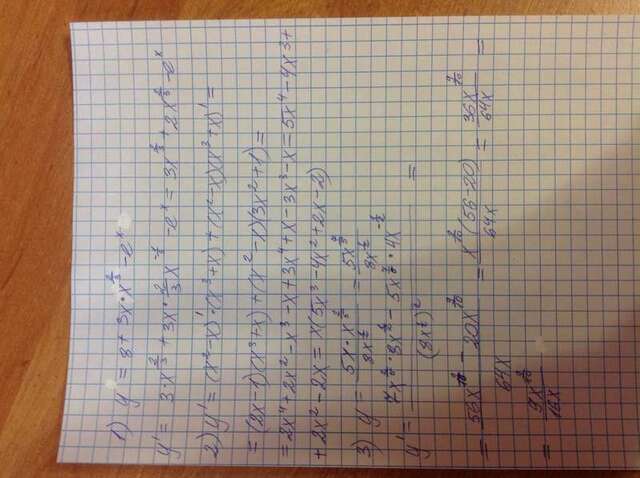 1) y = 8 + 3x·x^(2/3) - e^x
y' = 3·x^(2/3) + 3x·2/3 x^(-1/3) - e^x = 3x^(2/3) + 2x^(2/3) - e^x
2) y' = (x²-x)'·(x³+x) + (x²-x)(x³+x)' =
= (2x-1)(x³+x) + (x²-x)(3x²+1) =
= 2x⁴+2x²-x³-x+3x⁴+x-3x³-x = 5x⁴-4x³+
+ 2x²-2x = x(5x³-4x²+2x-2)
3) y = 5x·x^(2/5) / 8x^(1/2) = 5x^(7/5) / 8x^(1/2)
y' = 7x^(2/5)·8x^(1/2) - 5x^(7/5)·4x^(-1/2) / (8x^(1/2))² =
= 56x^(9/10) - 20x^(9/10) / 64x = x^(9/10)(56-20) / 64x = 36x^(9/10) / 64x =
= 9x^(9/10) / 16x